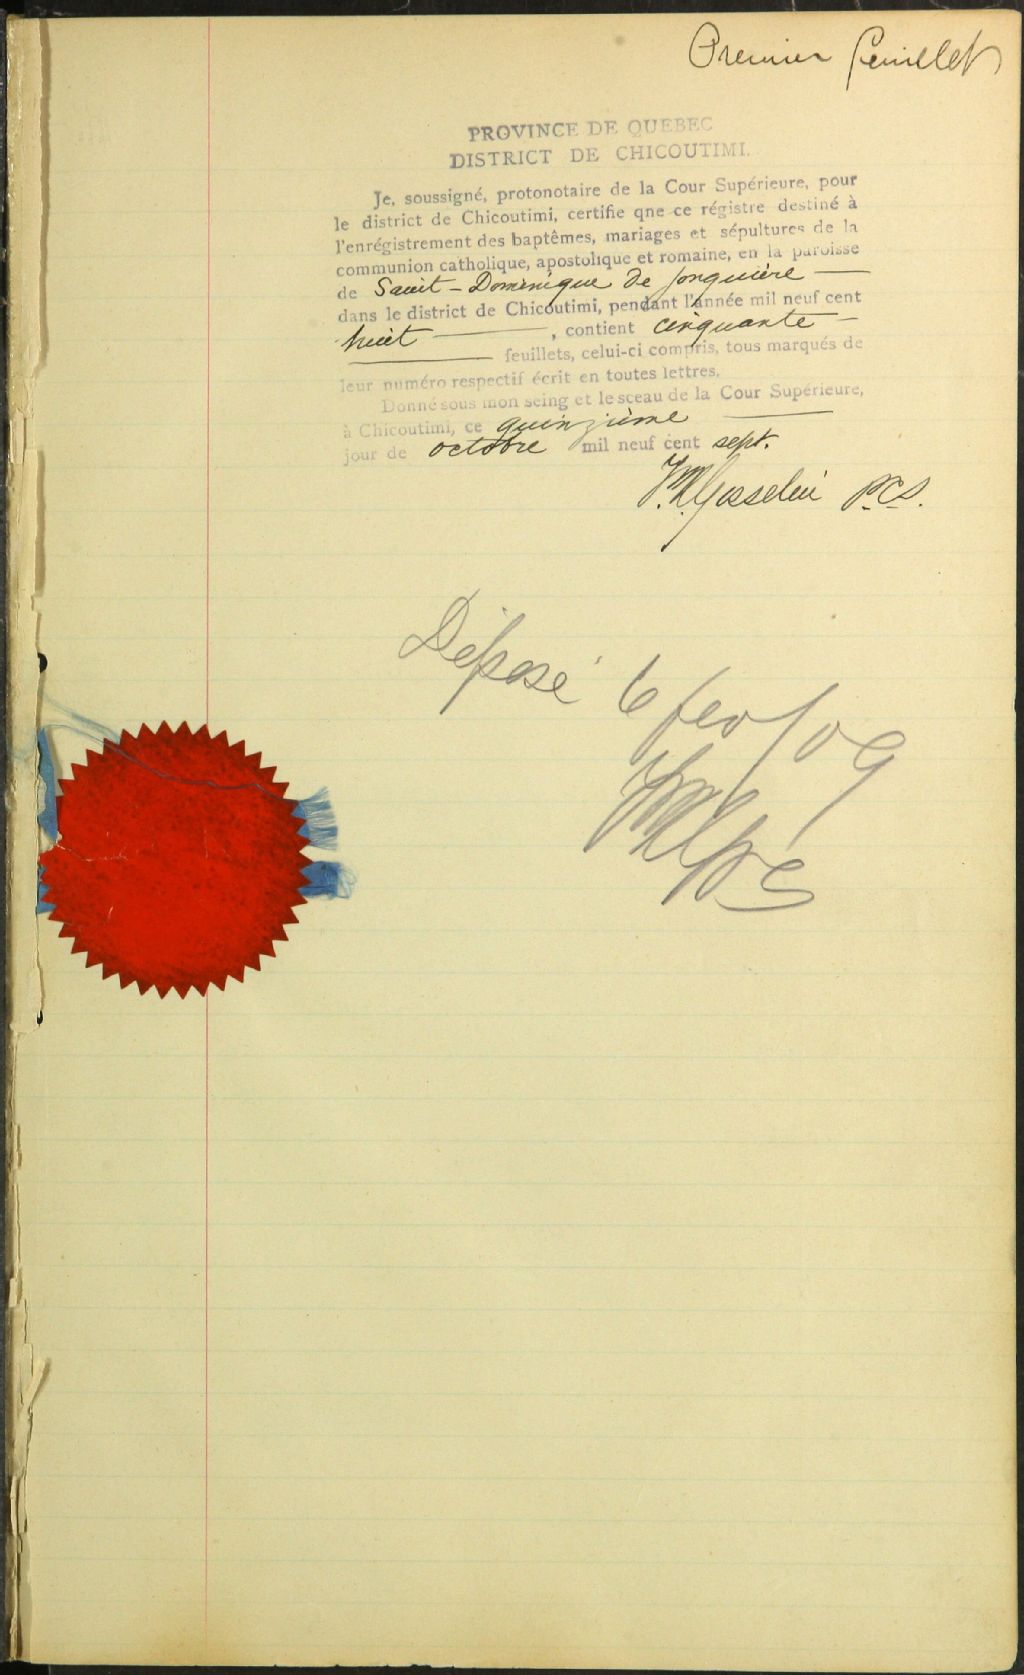 Premier feuillet
PROVINCE DE QUEBEC
DISTRICT DE CHICOUTIMI.
Je, soussigné, protonotaire de la Cour Supérieure, pour
le district de Chicoutimi, certifie qne ce régistre destiné à
l'enrégistrement des baptêmes, mariages et sépultures de la
communion catholique, apostolique et romaine, en la paroisse
de Saint-Dominique de Jonquière
dans le district de Chicoutimi, pendant l'année mil neuf cent
huit, contient cinquante
feuillets, celui-ci compris, tous marqués de
leur numéro respectif écrit en toutes lettres.
Donné sous mon seing et le sceau de la Cour Supérieure,
à Chicoutimi, ce quinzième
jour de octobre mil neuf cent sept.
Gosselin P.C.S.
Déposé 6 fev/09